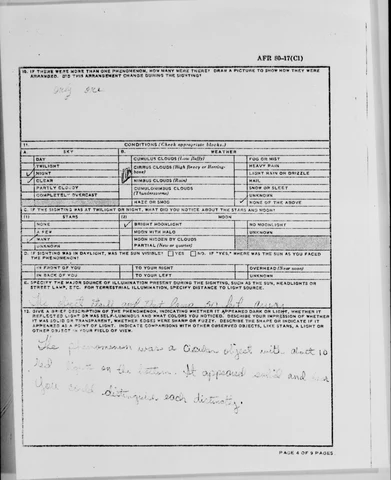 AFR 80-17(C1)
10. IF THERE WERE MORE THAN ONE PHENOMENON, HOW MANY WERE THERE? DRAW A PICTURE TO SHOW HOW THEY WERE
ARRANGED. DID THIS ARRANGEMENT CHANGE DURING THE SIGHTING?
only one
11. CONDITIONS (Check appropriate blocks.)
A. SKY B. WEATHER
DAY CUMULUS CLOUDS (Low fluffy) FOG OR MIST
TWILIGHT CIRRUS CLOUDS (High fleecy or Herring- HEAVY RAIN
NIGHT bone) LIGHT RAIN OR DRIZZLE
CLEAR NIMBUS CLOUDS (Rain) HAIL
PARTLY CLOUDY CUMULONIMBUS CLOUDS SNOW OR SLEET
COMPLETELY OVERCAST (Thunderstorms) UNKNOWN
HAZE OR SMOG NONE OF THE ABOVE
C. IF THE SIGHTING WAS AT TWILIGHT OR NIGHT, WHAT DID YOU NOTICE ABOUT THE STARS AND MOON?
(1) STARS (2) MOON
NONE BRIGHT MOONLIGHT NO MOONLIGHT
A FEW MOON WITH HALO UNKNOWN
MANY MOON HIDDEN BY CLOUDS
UNKNOWN PARTIAL (New or quarter)
D. IF SIGHTING WAS IN DAYLIGHT, WAS THE SUN VISIBLE? YES NO. IF "YES," WHERE WAS THE SUN AS YOU FACED
THE PHENOMENON?
IN FRONT OF YOU TO YOUR RIGHT OVERHEAD (Near noon)
IN BACK OF YOU TO YOUR LEFT UNKNOWN
E. SPECIFY THE MAJOR SOURCE OF ILLUMINATION PRESENT DURING THE SIGHTING, SUCH AS THE SUN, HEADLIGHTS OR
STREET LAMP, ETC. FOR TERRESTRIAL ILLUMINATION, SPECIFY DISTANCE TO LIGHT SOURCE.
The object itself and that
12. GIVE A BRIEF DESCRIPTION OF THE PHENOMENON, INDICATING WHETHER IT APPEARED DARK OR LIGHT, WHETHER IT
REFLECTED LIGHT OR WAS SELF-LUMINOUS AND WHAT COLORS YOU NOTICED. DESCRIBE YOUR IMPRESSION OF WHETHER
IT WAS SOLID OR TRANSPARENT, WHETHER EDGES WERE SHARP OR FUZZY. DESCRIBE THE SHAPE OR INDICATE IF IT
APPEARED AS A POINT OF LIGHT. INDICATE COMPARISONS WITH OTHER OBSERVED OBJECTS, LIKE STARS, A LIGHT OR
OTHER OBJECT IN YOUR FIELD OF VIEW.
The phenomenon was a circular object with about 10
red lights on the bottom. It appeared solid and
could distinguish each distinctly.
PAGE 4 OF 9 PAGES